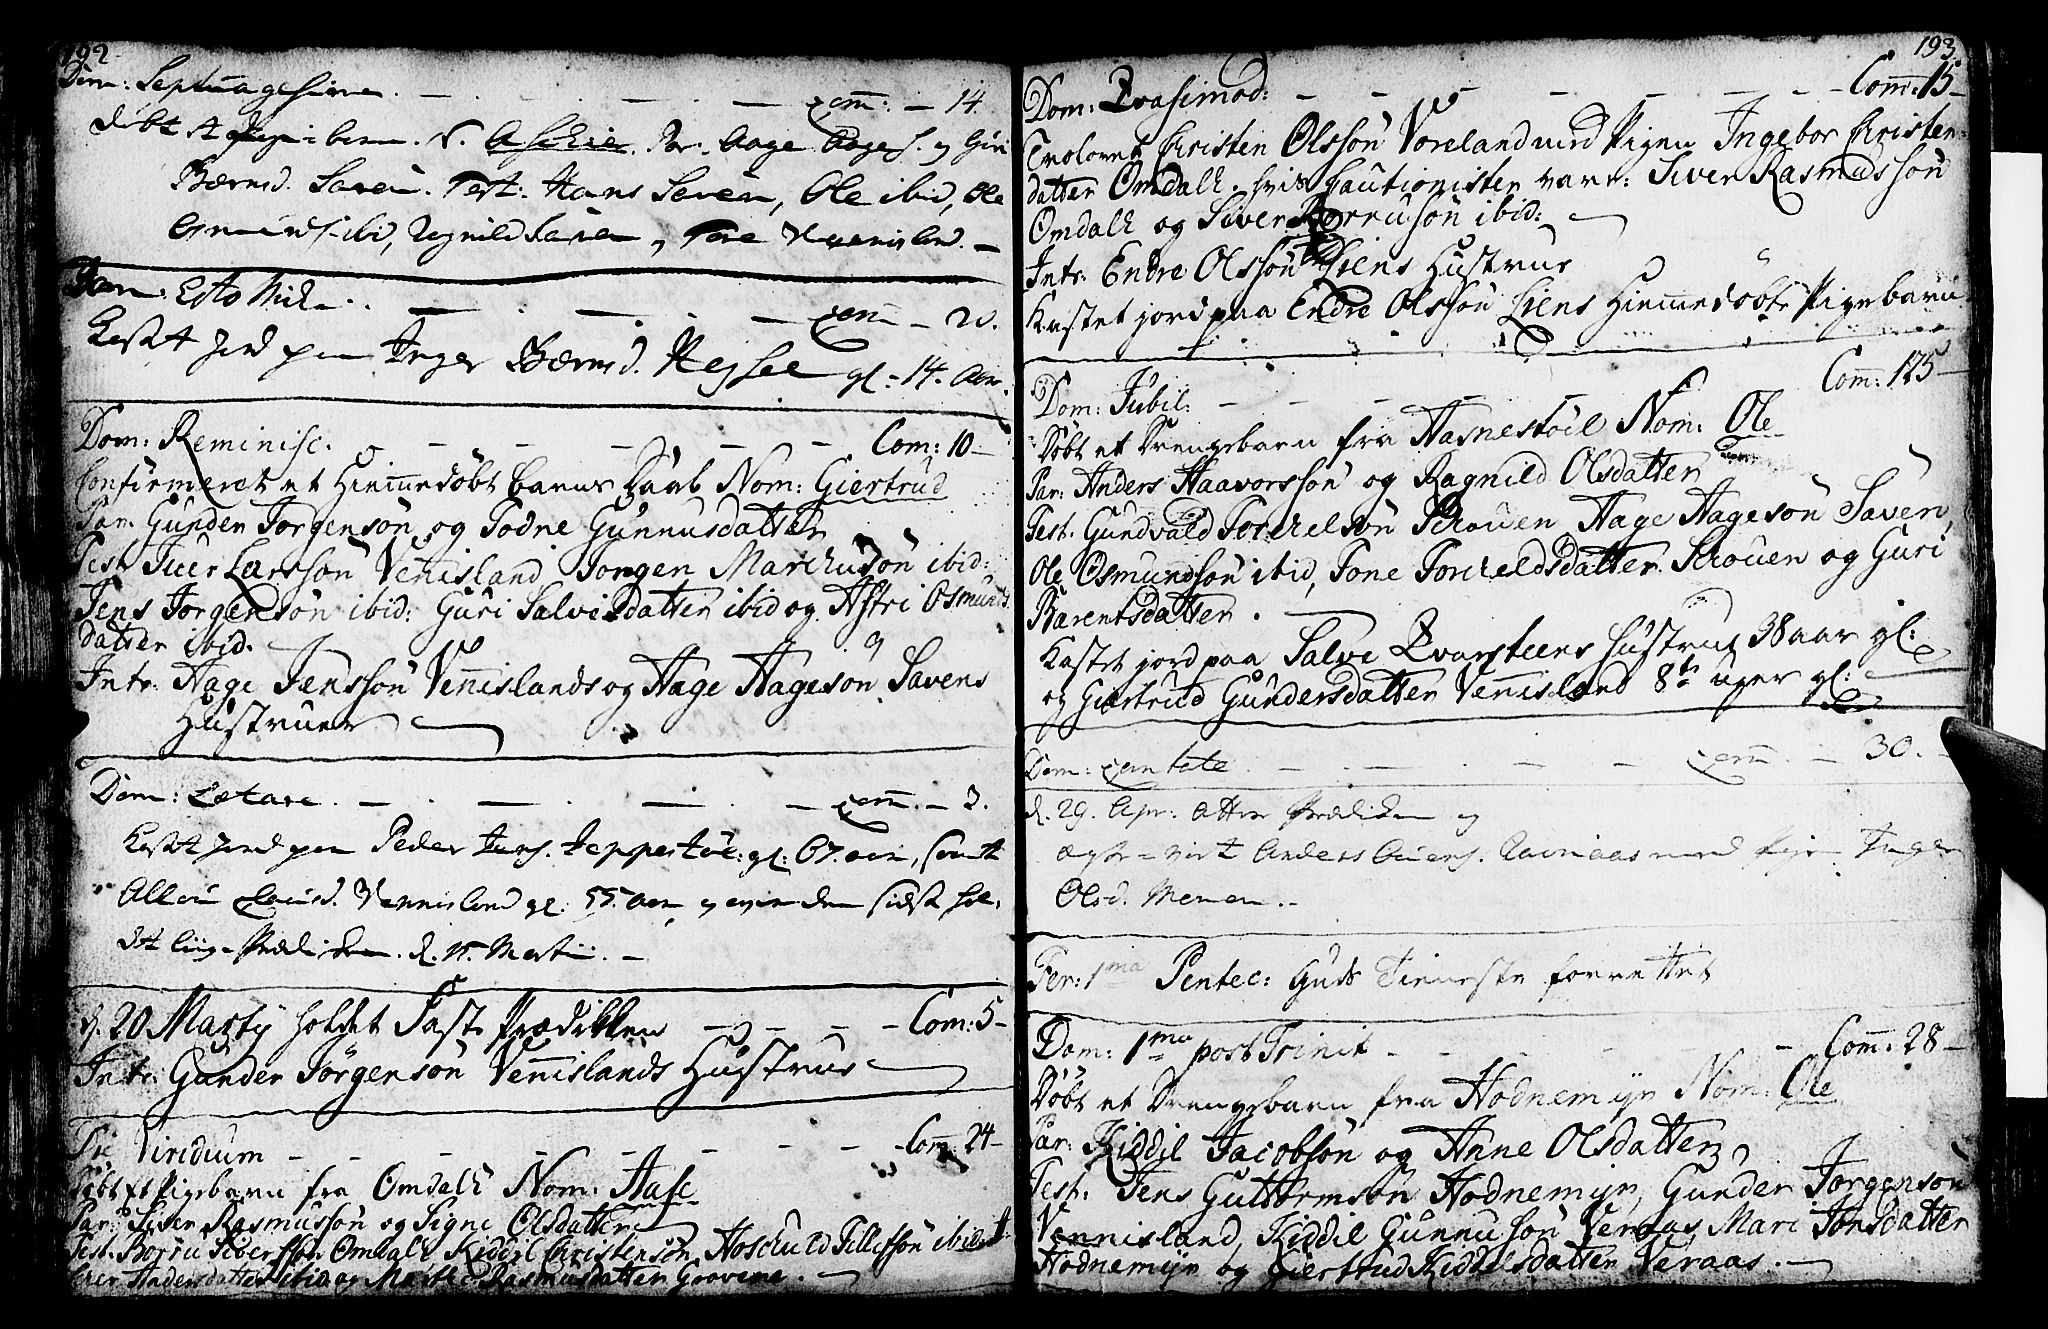 192
Dom: Septuagesima. Com: 14.
døbt et Pigebarn. N. Par. Aage Aages. og Guri
Bærnsd. Saven. Test: Hans Saven, Ole ibid, Ole
Osmunds. ibid, Ragnild Saven, Tore Vennisland.
Dom: Esto Mihi. Com 20.
Kastet Jord paa Inger Bærnsd. gl. 14. Aar.
Dom: Reminisc. Com: 10
Confirmeret et Hiemmedøbt barns Daab Nom: Giertrud
Par. Gunder Jørgensøn og Todne Gunnusdatter
Test. Iver Larssøn Vennisland Jørgen Marchusøn ibid:
Jens Jørgensøn ibid: Guri Salvisdatter ibid og Astri Osmunds
datter ibid.
Intr. Aage Jenssøn Vennislands og Aage Aagesøn Savens
Hustruer
Dom: Lætare. Com. 3.
Kastet Jord paa Peder Jens. Jeppestøl: gl: 67. aar, samt
Vennisland gl. 55. Aar og over den sidst hol-
dt Liig-Prædiken. d. 15. Martii.
d. 20 Marty holdet Faste Prædikken Com: 5
Intr: Gunder Jørgensøn Vennislands Hustrue
Die Viridium Com: 24
Døbt et Pigebarn fra Omdahl Nom: Aase
Par: Siver Rasmussøn og Signe Olsdatter
Test. Børru Siversøn Omdahl Kiddil Christensøn, Hoschuld Tellefsøn ibid
Andersdatter ibid og Marthe Rasmusdatter Grovene.
193
Dom: Qvasimod: Com: 15
Trolovet Christen Olssøn Voreland med Pigen Ingebor Christen-
datter Omdahl. hvis Cautionister vare: Siver Rasmussøn
Omdahl og Siver Børrusøn ibid:
Intr. Endre Olssøn Liens Hustrue
Kastet jord paa Endre Olssøn Liens Hiemmedøbte Pigebarn
Dom: Jubil: Com: 125
Døbt et Drengebarn fra Hasnestøil Nom: Ole
Par: Anders Haavorssøn og Ragnild Olsdatter
Test. Gundvald Torchelsøn Schouen Aage Aagesøn Saven,
Ole Osmundsøn ibid, Tone Torcheldsdatter Schouen og Guri
Barentsdatter.
Kastet jord paa Salve Qvarsteens Hustrue 38 aar gl:
og Giertrud Gundersdatter Vennisland 8te uger gl:
Dom: Cantate. Com. 30.
d. 29. Apr: efter Prædiken og
ægte-viet Anders Ravnaas med Pigen Inger
Olsd.
Fer: 1ma Pentec: Guds Tieneste forrettet
Dom: 1ma post Trinit Com: 28
Døbt et Drengebarn fra Hodnemyr Nom: Ole
Par: Kiddil Jacobsøn og Anne Olsdatter
Test: Jens Guttormsøn Hodnemyr, Gunder Jørgensøn
Vennisland, Kiddil Gunnusøn Veraas, Mari Jonsdatter
Hodnemyr og Giertrud Kiddelsdatter Veraas.